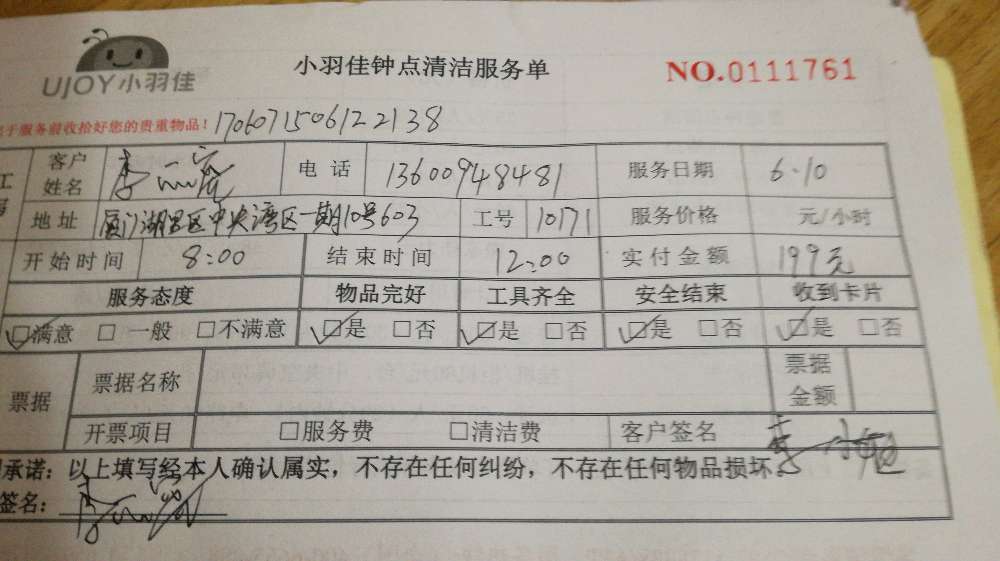 UJOY小羽佳
小羽佳钟点清洁服务单
NO.0111761
于服务前收拾好您的贵重物品! 1706071506122138
客户姓名 李 电话 13600948481 服务日期 6.10
地址 厦门湖里区中央湾区一期10号603 工号 10171 服务价格 元/小时
开始时间 8:00 结束时间 12:00 实付金额 199元
服务态度 物品完好 工具齐全 安全结束 收到卡片
☑满意 □一般 □不满意 ☑是 □否 ☑是 □否 ☑是 □否 ☑是 □否
票据 票据名称 票据金额
开票项目 □服务费 □清洁费 客户签名 李
承诺:以上填写经本人确认属实,不存在任何纠纷,不存在任何物品损坏。
签名: 李